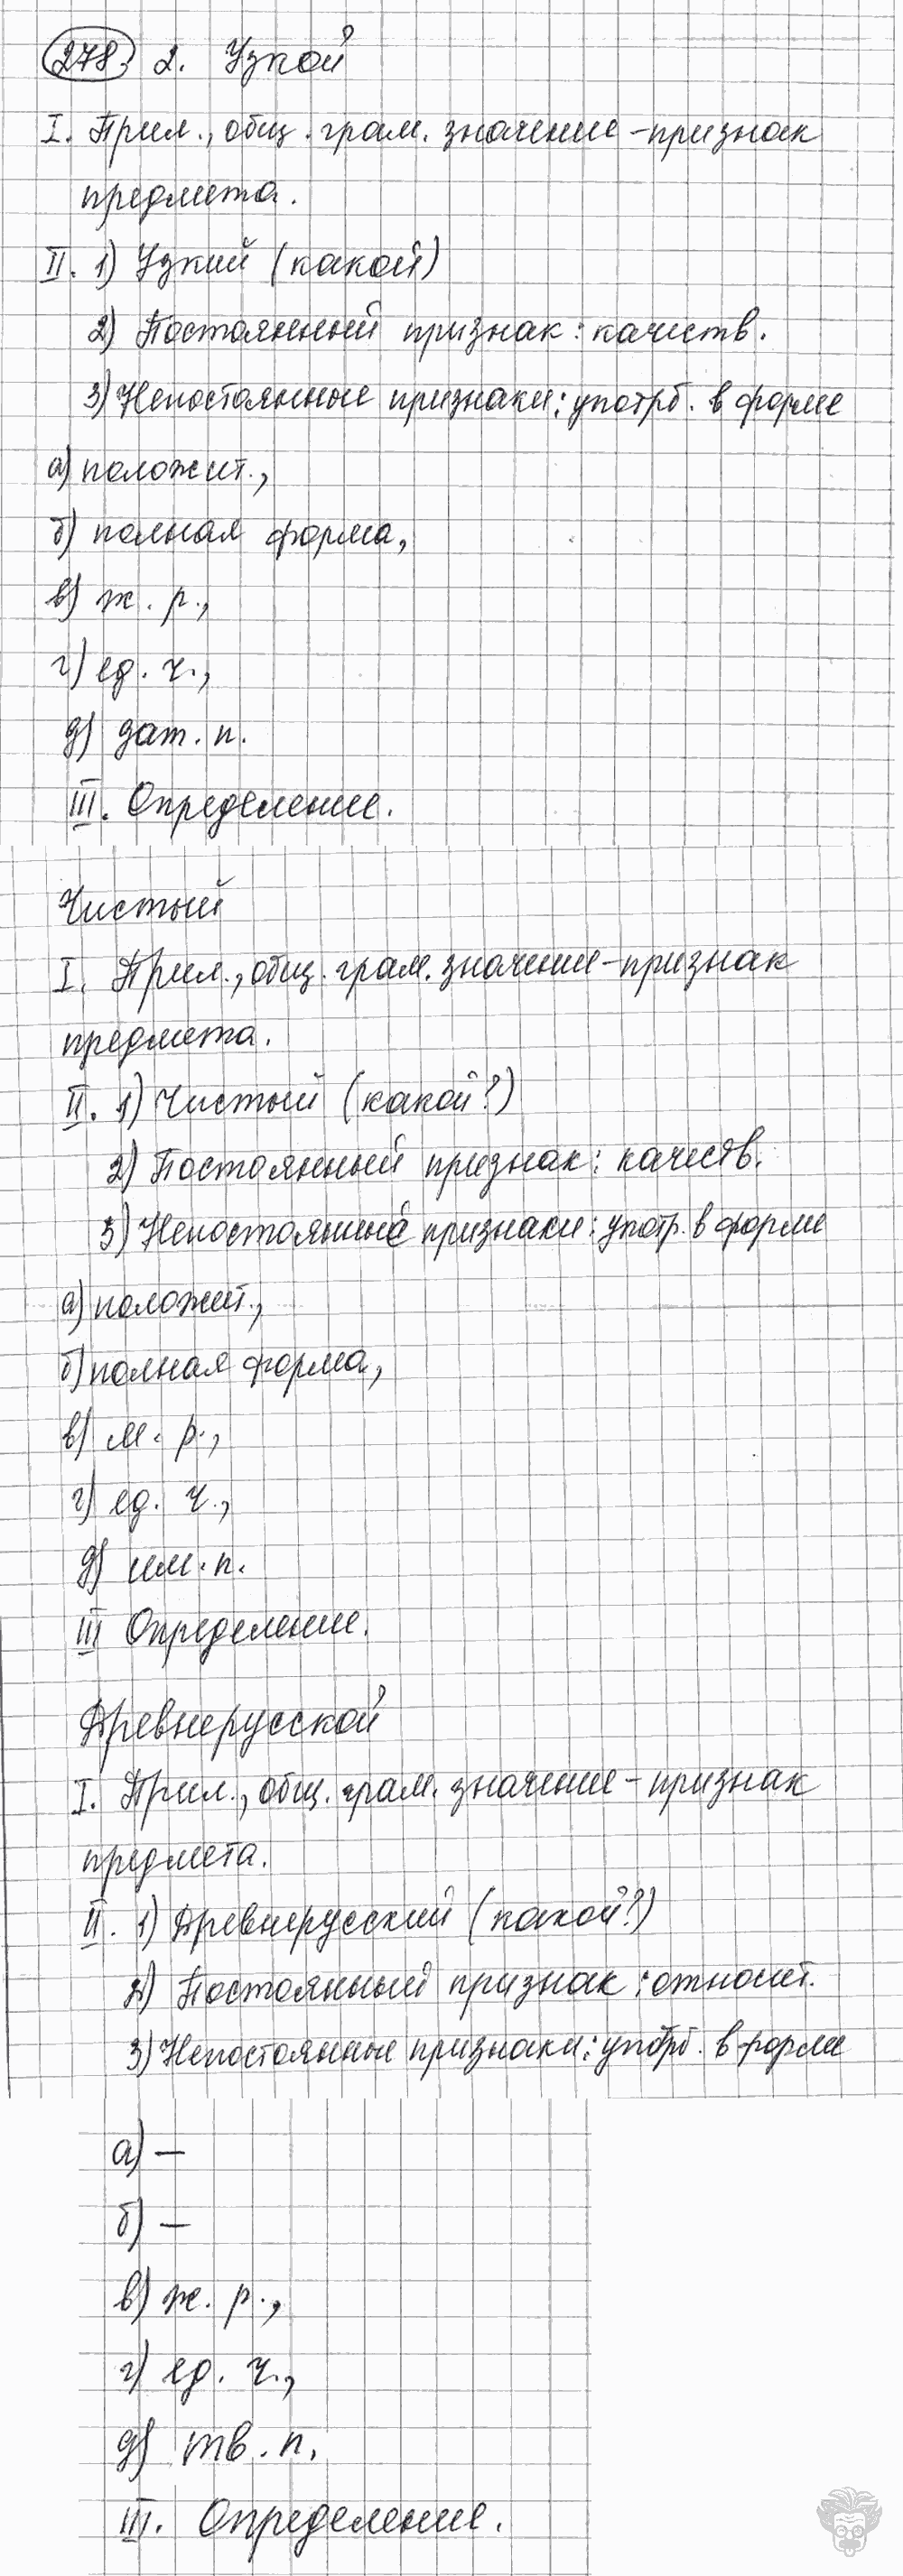 278. 2. Узкой
I. Прил., общ. грам. значение – признак
предмета.
II. 1) Узкий (какой)
2) Постоянный признак: качеств.
3) Непостоянные признаки: употрб. в форме
а) положит.,
б) полная форма,
в) ж. р.,
г) ед. ч.,
д) дат. п.
III. Определение.
Чистый
I. Прил., общ. грам. значение – признак
предмета.
II. 1) Чистый (какой?)
2) Постоянный признак: качеств.
3) Непостоянные признаки: употр. в форме
а) положит.,
б) полная форма,
в) м. р.,
г) ед. ч.,
д) им. п.
III Определение.
Древнерусской
I. Прил., общ. грам. значение – признак
предмета.
II. 1) Древнерусский (какой?)
2) Постоянный признак: относит.
3) Непостоянные признаки: употрб. в форме
а) —
б) —
в) ж. р.,
г) ед. ч.,
д) тв. п.
III. Определение.